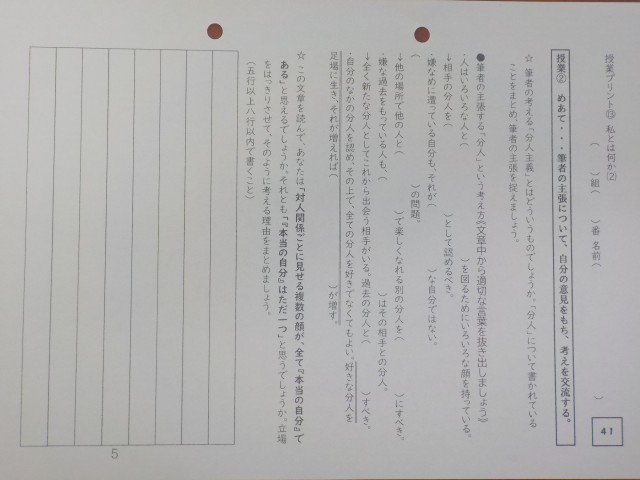 授業プリント⑬ 私とは何か②
( )組( )番 名前( )
41
授業② めあて・・・筆者の主張について、自分の意見をもち、考えを交流する。
☆ 筆者の考える「分人主義」とはどういうものでしょうか。「分人」について書かれている
ことをまとめ、筆者の主張を捉えましょう。
●筆者の主張する「分人」という考え方《文章中から適切な言葉を抜き出しましょう》
・人はいろいろな人と( )を図るためにいろいろな顔を持っている。
→相手の分人を( )として認めるべき。
・嫌なめに遭っている自分も、それが( )な自分ではない。
( )の問題。
→他の場所で他の人と( )で楽しくなれる別の分人を( )にすべき。
・嫌な過去をもっている人も、( )はその相手との分人。
→全く新たな分人としてこれから出会う相手がいる。過去の分人と( )すべき。
・自分のなかの分人を認め、その上で、全ての分人を好きでなくてもよい。好きな分人を
足場に生き、それが増えれば( )が増す。
☆ この文章を読んで、あなたは「対人関係ごとに見せる複数の顔が、全て『本当の自分』で
ある」と思えるでしょうか。それとも「『本当の自分』はただ一つ」と思うでしょうか。立場
をはっきりさせて、そのように考える理由をまとめましょう。
(五行以上八行以内で書くこと)
5